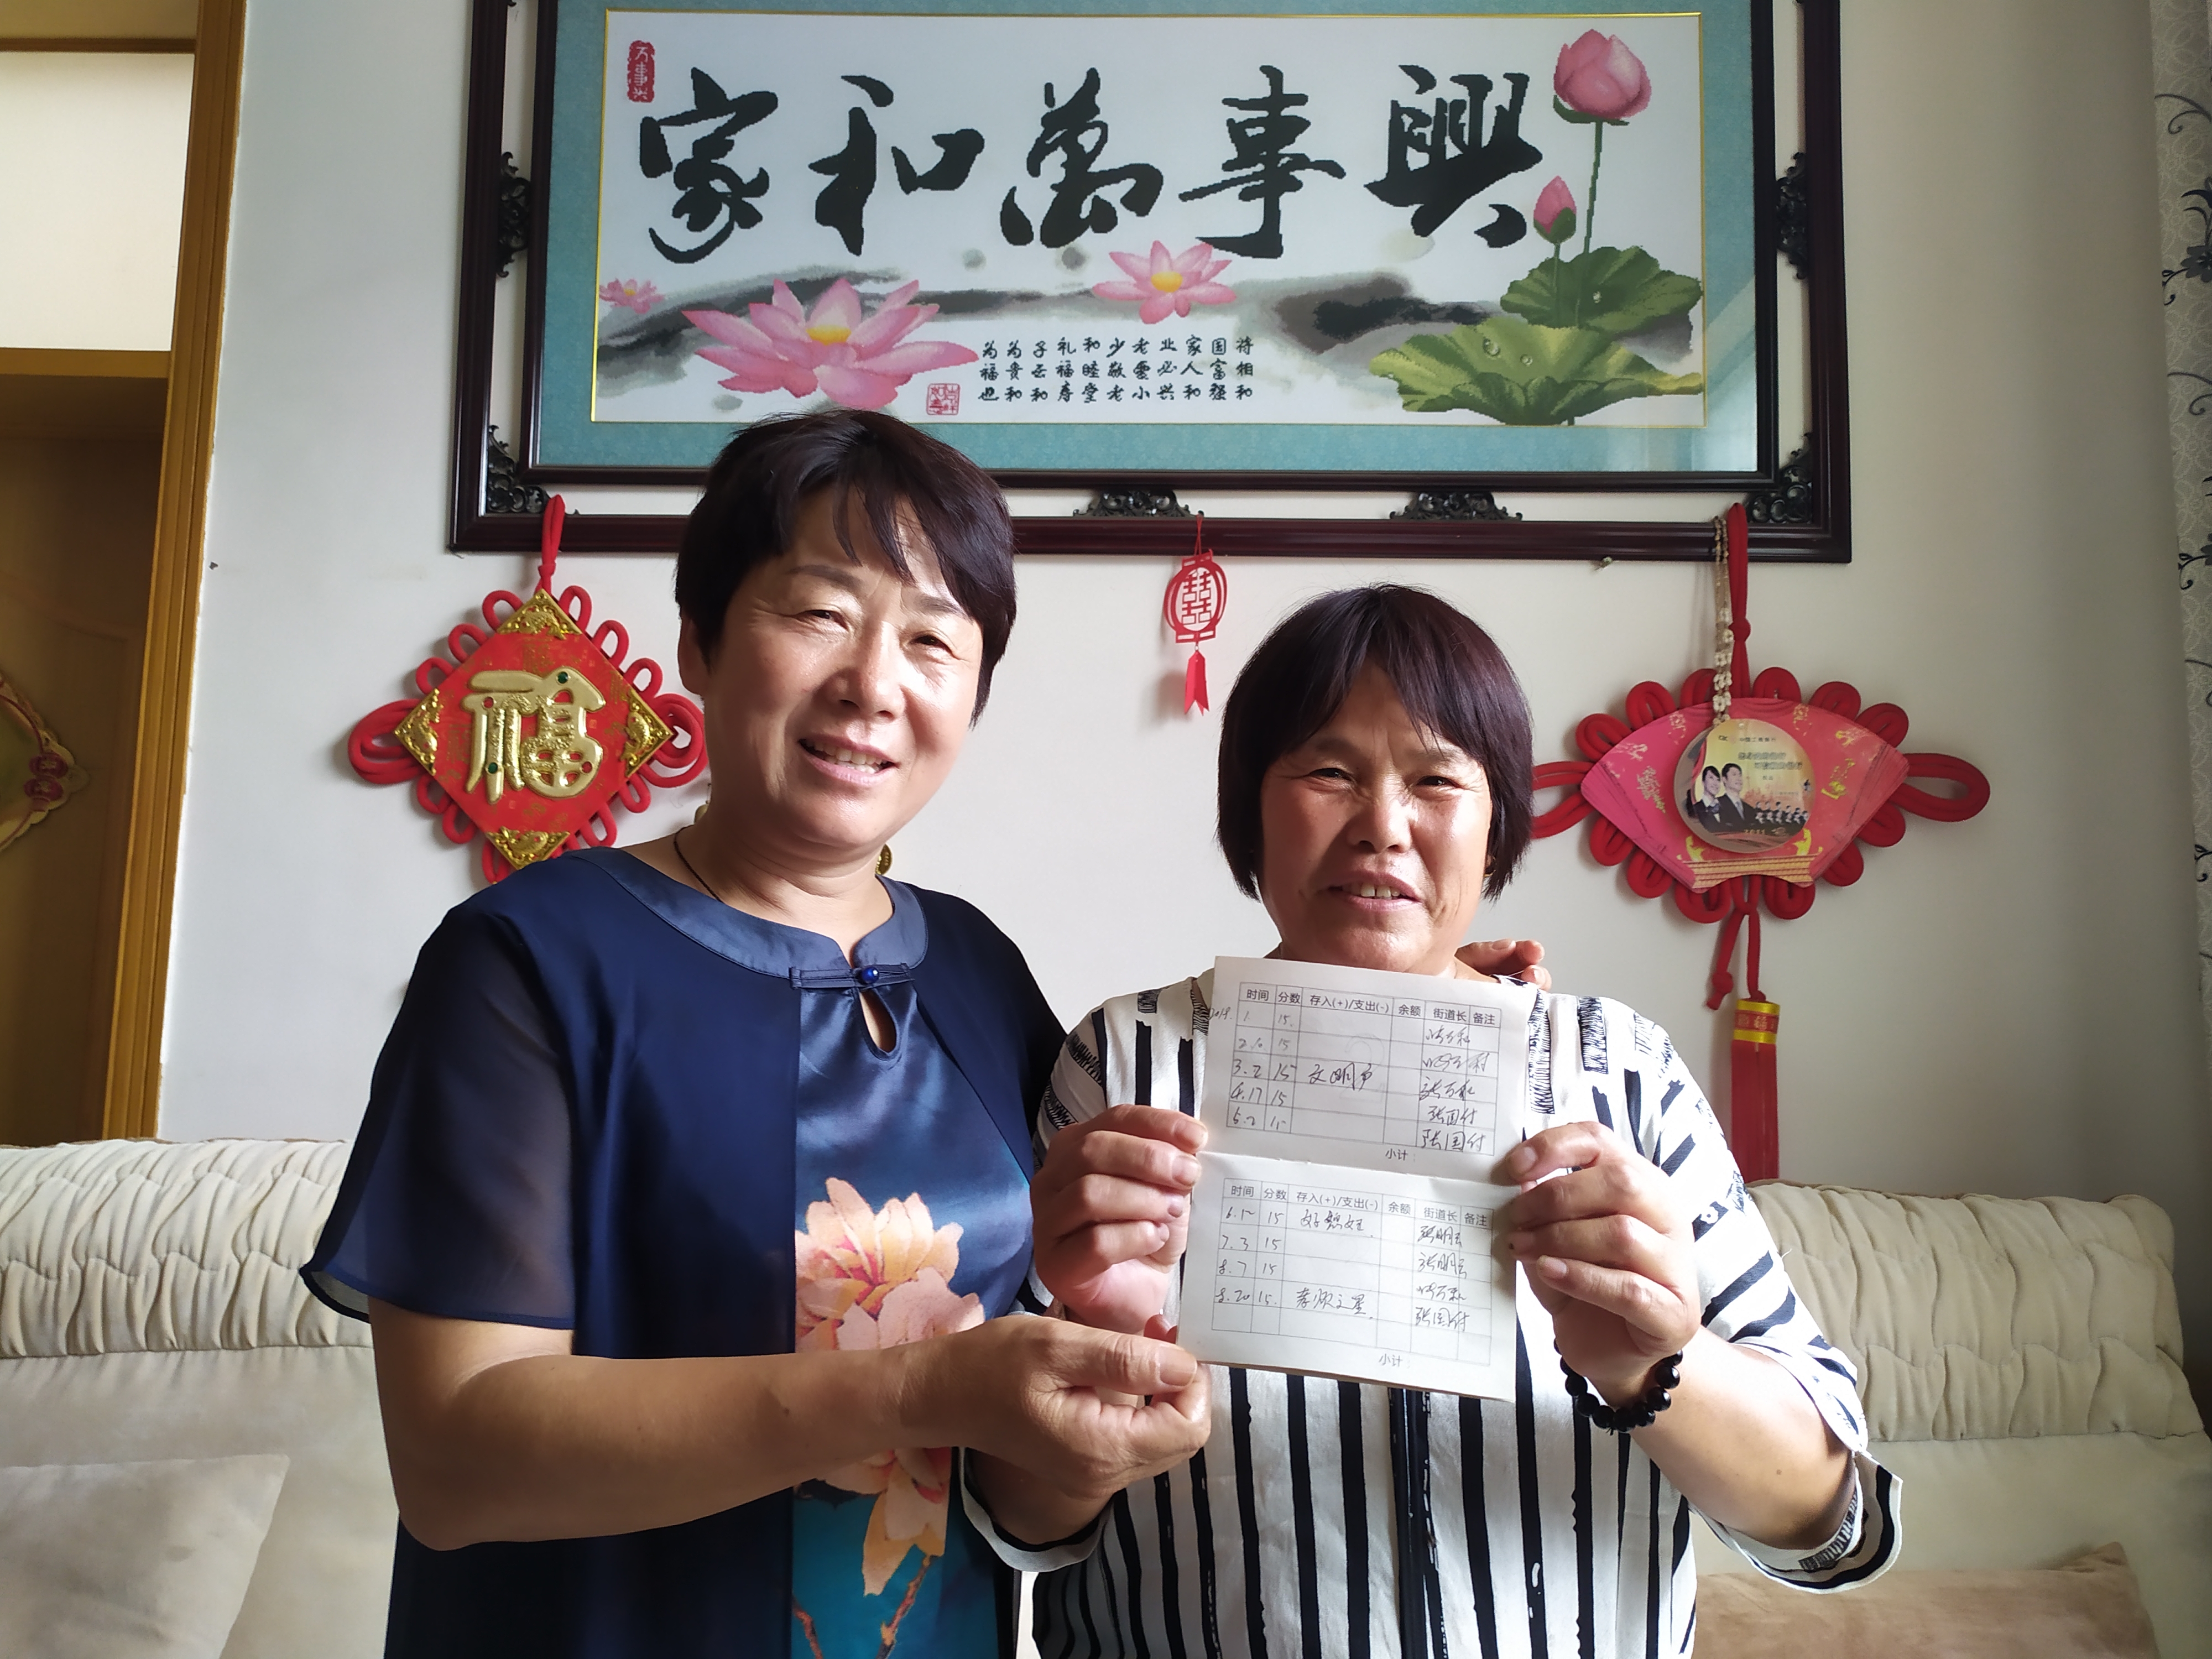 万事兴
家和萬事興
为为子礼和少老业家国将
福贵云福睦敬爱必人富相
也和和寿堂老小兴和强和
福
囍
2011
时间 分数 存入(+)/支出(-) 余额 街道长 备注
1. 15.
15
3.2 15 文明户
4.17 15 张国付
5.2 15 张国付
小计：
时间 分数 存入(+)/支出(-) 余额 街道长 备注
15 好媳妇 张明云
7.3 15 张明云
8.7 15
8.20 15. 孝顺之星. 张国付
小计：